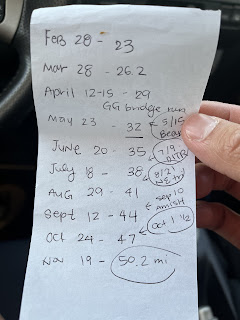 FEB 28 - 23
Mar 28 - 26.2
April 12-15 - 29
GG bridge run
May 23 - 32
5/15
Bear
June 20 - 35
7/19
July 18 - 38
8/21
Aug 29 - 41
Sep 10
Amish
Sept 12 - 44
Oct 1 1/2
Oct 24 - 47
Nov 19 - 50.2 mi